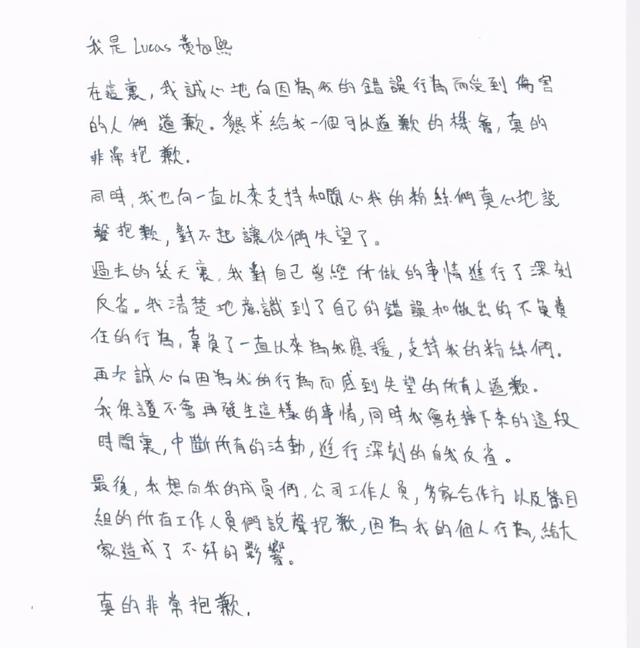 我是 Lucas 黃旭熙
在這裏,我誠心地向因為我的錯誤行為而受到傷害
的人們道歉。懇求給我一個可以道歉的機會,真的
非常抱歉.
同時,我也向一直以來支持和關心我的粉絲們真心地說
聲抱歉,對不起讓你們失望了。
過去的幾天裏,我對自己曾經所做的事情進行了深刻
反省。我清楚地意識到了自己的錯誤和做出的不負責
任的行為,辜負了一直以來為我應援,支持我的粉絲們.
再次誠心向因為我的行為而感到失望的所有人道歉.
我保證不會再發生這樣的事情,同時我會在接下來的這段
時間裏,中斷所有的活動,進行深刻的自我反省。
最後,我想向我的成員們,公司工作人員,各家合作方以及節目
組的所有工作人員們說聲抱歉,因為我的個人行為,給大
家造成了不好的影響。
真的非常抱歉.